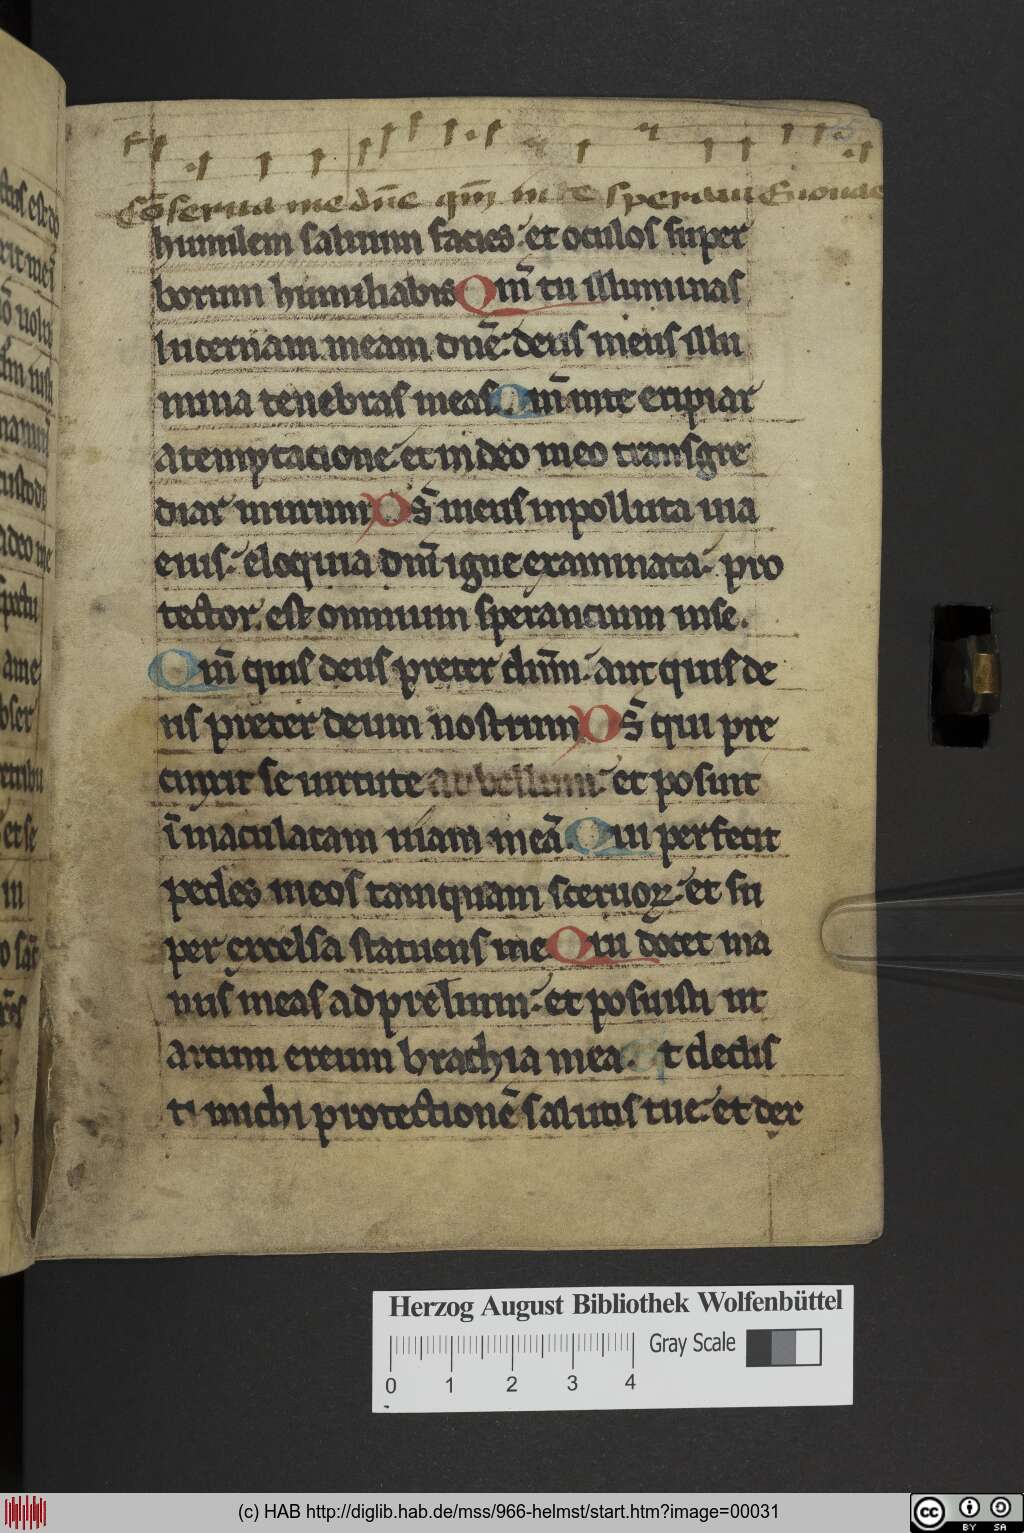 Cōserua me dn̄e qm̄ in te speraui Euouae
humilem saluum facies· et oculos super
borum humiliabis Qm̄ tu illuminas
lucernam meam dn̄e· deus meus illu
mina tenebras meas Qm̄ inte eripiar
atemptacione· et indeo meo transgre
diar murum Ds̄ meus inpolluta uia
eius· eloquia dnı̄ igne examinata· pro
tector est omnium sperancium inse.
Qm̄ quis deus preter dnm̄· aut quis de
us preter deum nostrum Ds̄ qui pre
cinxit se uirtute ad bellum· et posuit
īmaculatam uiam meā. Qui perfecit
pedes meos tamquam ceruoꝝ· et su
per excelsa statuens me Qui docet ma
nus meas ad prelium· et posuisti ut
arcum ereum brachia mea. Et dedis
ti michi protectionē salutis tue· et dex
Herzog August Bibliothek Wolfenbüttel
Gray Scale
0 1 2 3 4
(c) HAB http://diglib.hab.de/mss/966-helmst/start.htm?image=00031
cc BY SA